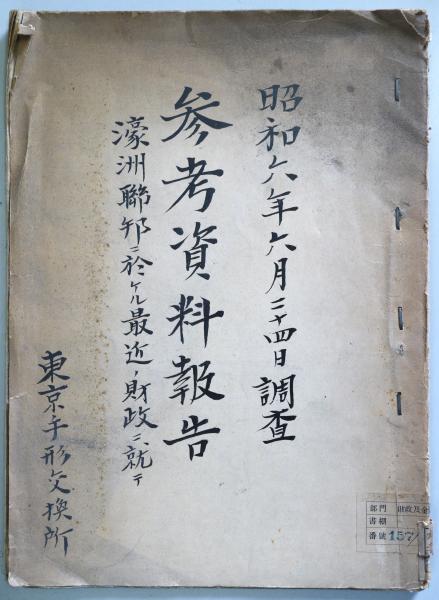 昭和六年六月二十四日調査
参考資料報告
濠洲聯邦ニ於ケル最近ノ財政ニ就テ
東京手形交換所
部門 財政及金
書棚
番號 157